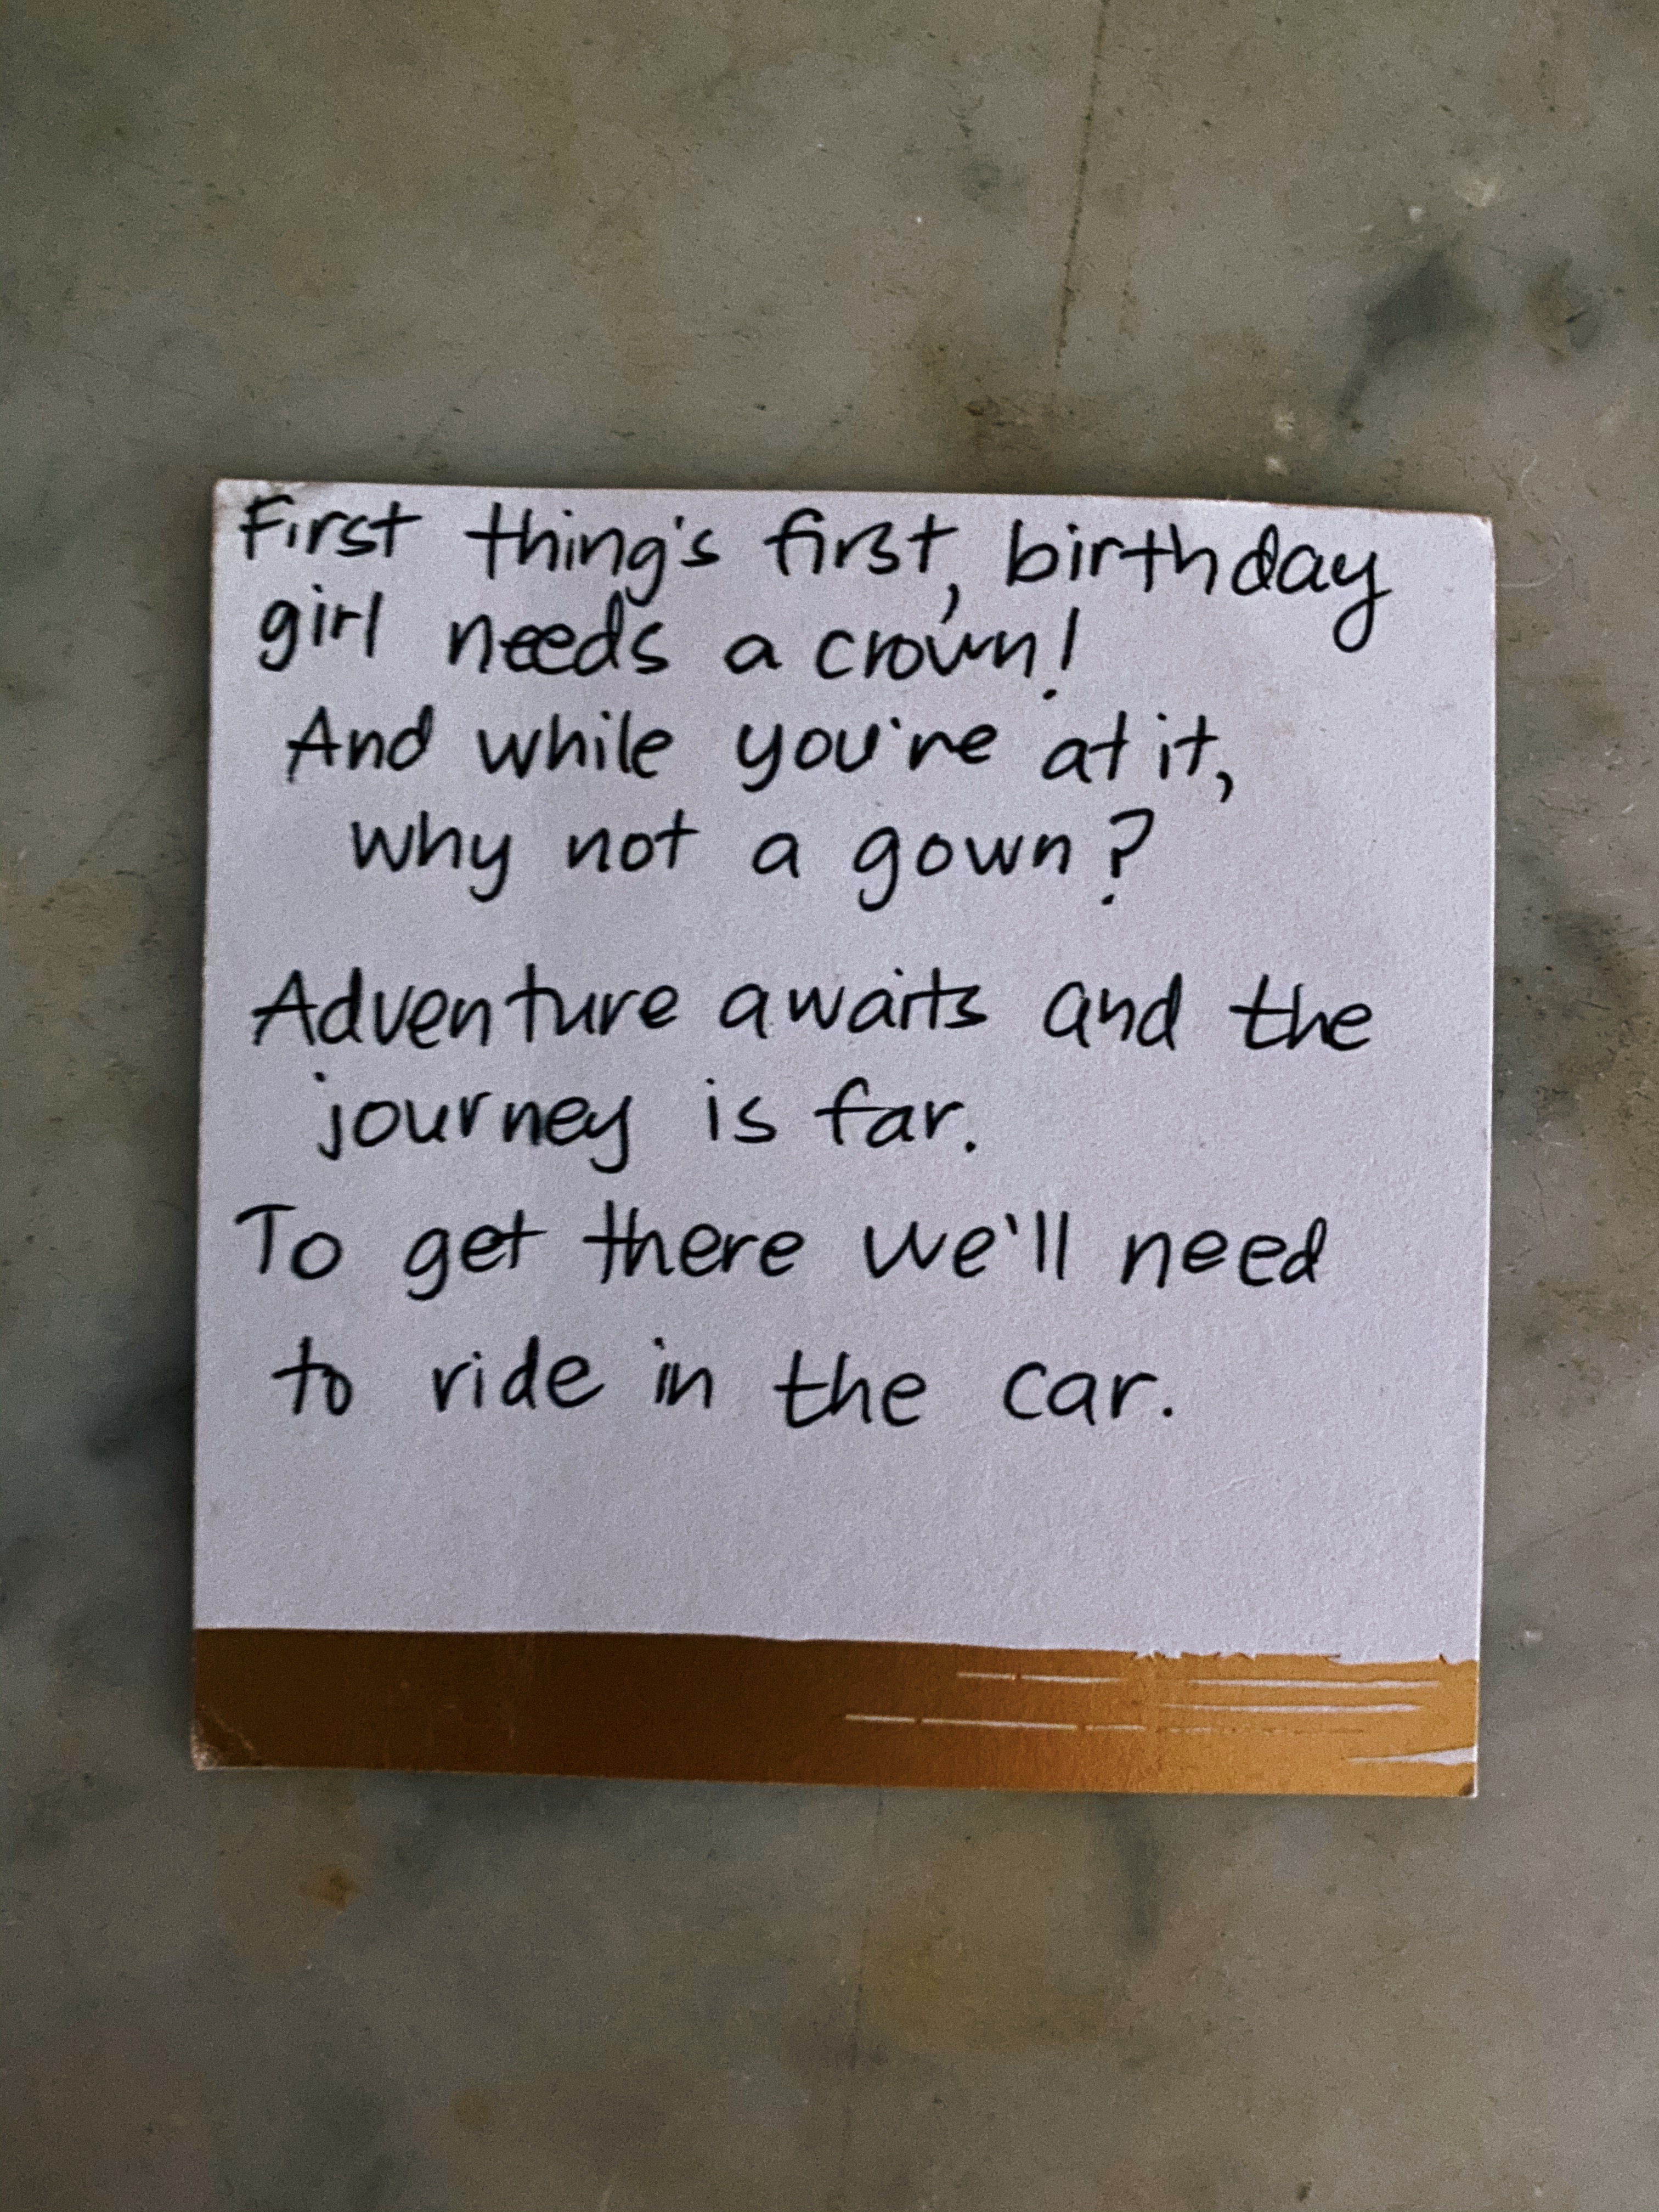 First thing's first, birthday
girl needs a crown!
And while you're at it,
why not a gown?
Adventure awaits and the
journey is far.
To get there we'll need
to ride in the car.